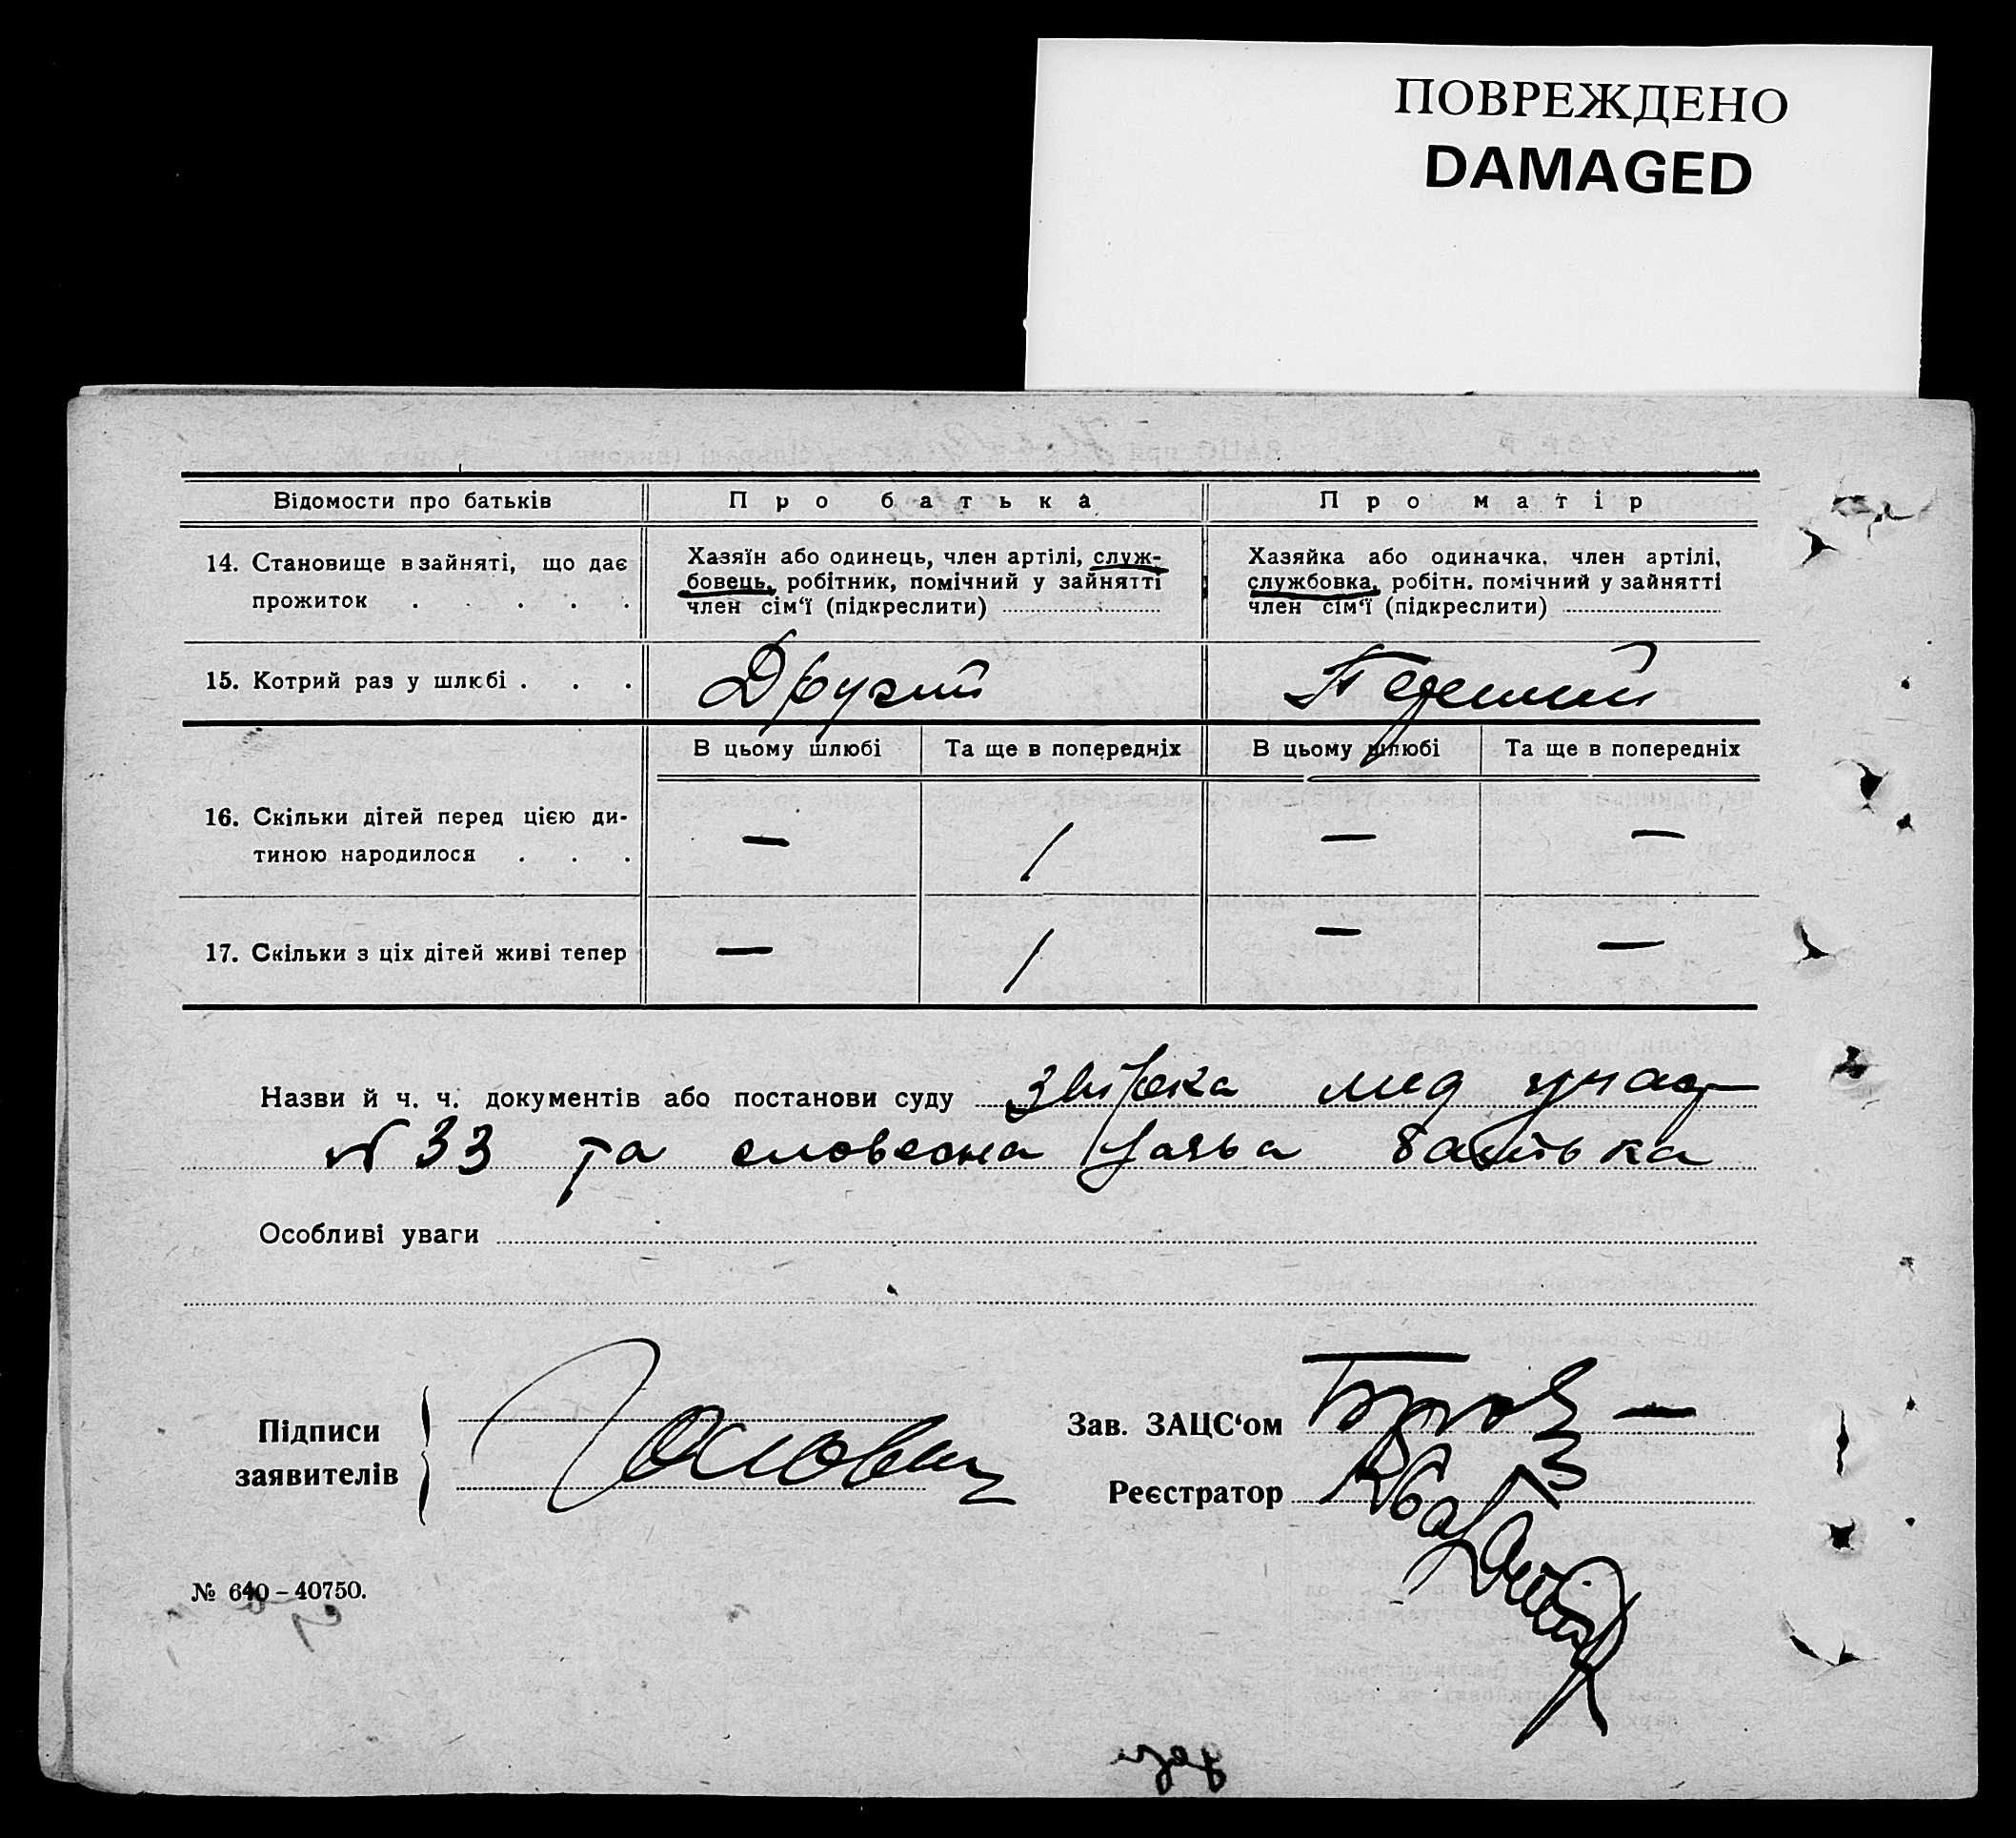 ПОВРЕЖДЕНО
DAMAGED
Відомости про батьків
Про батька
Про матір
14. Становище в зайняті, що дає
прожиток . . . . .
Хазяїн або одинець, член артілі, служ-
бовець, робітник, помічний у зайнятті
член сім‘ї (підкреслити)
Хазяйка або одиначка, член артілі,
службовка, робітн. помічний у зайнятті
член сім‘ї (підкреслити)
15. Котрий раз у шлюбі . . .
Другий
Перший
В цьому шлюбі
Та ще в попередніх
В цьому шлюбі
Та ще в попередніх
16. Скільки дітей перед цією ди-
тиною народилося . . .
— 1 — —
17. Скільки з ціх дітей живі тепер
— 1 — —
Назви й ч. ч. документів або постанови суду мед
№ 33 та словесна заява батька
Особливі уваги
Підписи
заявителів
Зав. ЗАЦС‘ом
Реєстратор
№ 640 – 40750.